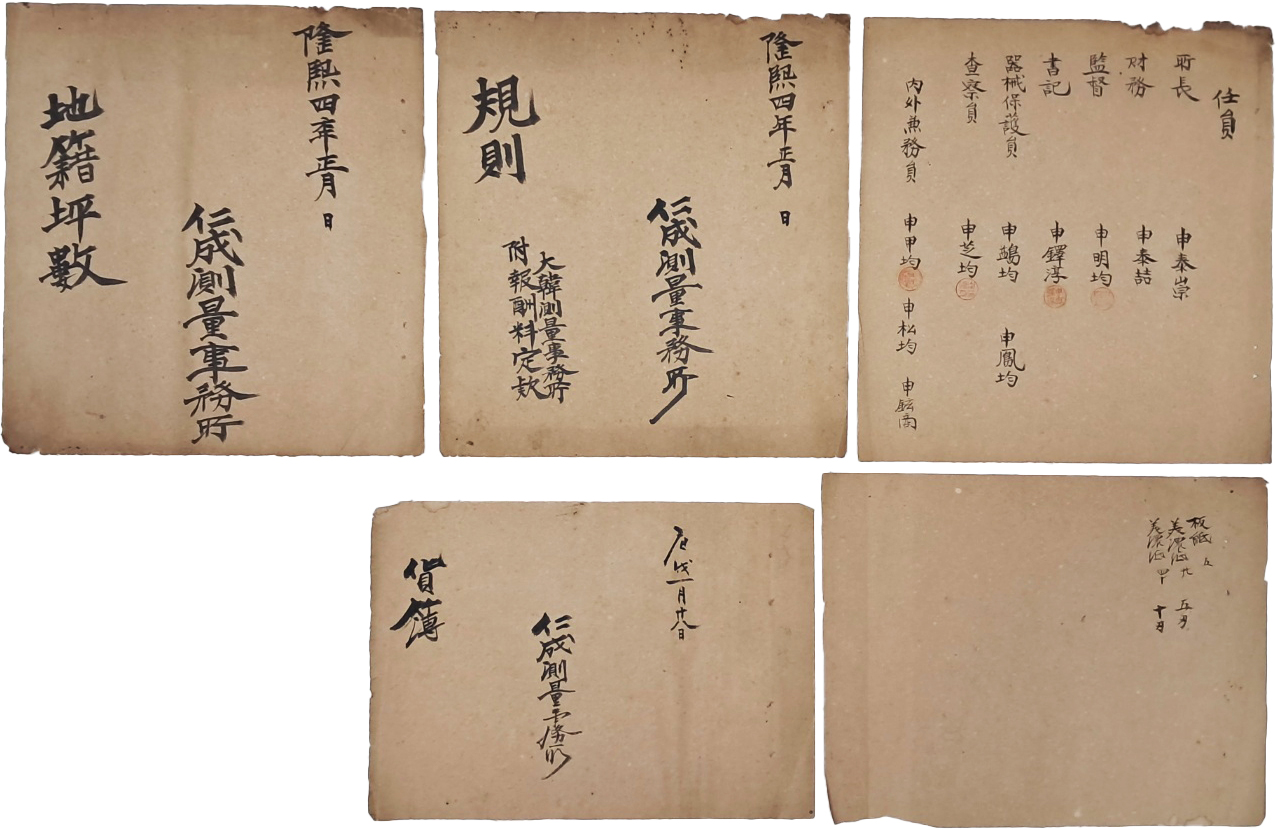 隆熙四年正月 日
仁成測量事務所
地籍坪數
隆熙四年正月 日
仁成測量事務所
大韓測量事務所
附報酬料定款
規則
任員
所長 申泰崇
財務 申泰喆
監督 申明均
書記 申鐸淳
器械保護員 申鷁均 申鳳均
查察員 申芝均
內外兼務員 申甲均 申松均 申鉉商
庚戌一月十八日
仁成測量事務所
貨簿
板紙 五
美濃紙 九 五月
美濃紙 四十 十月